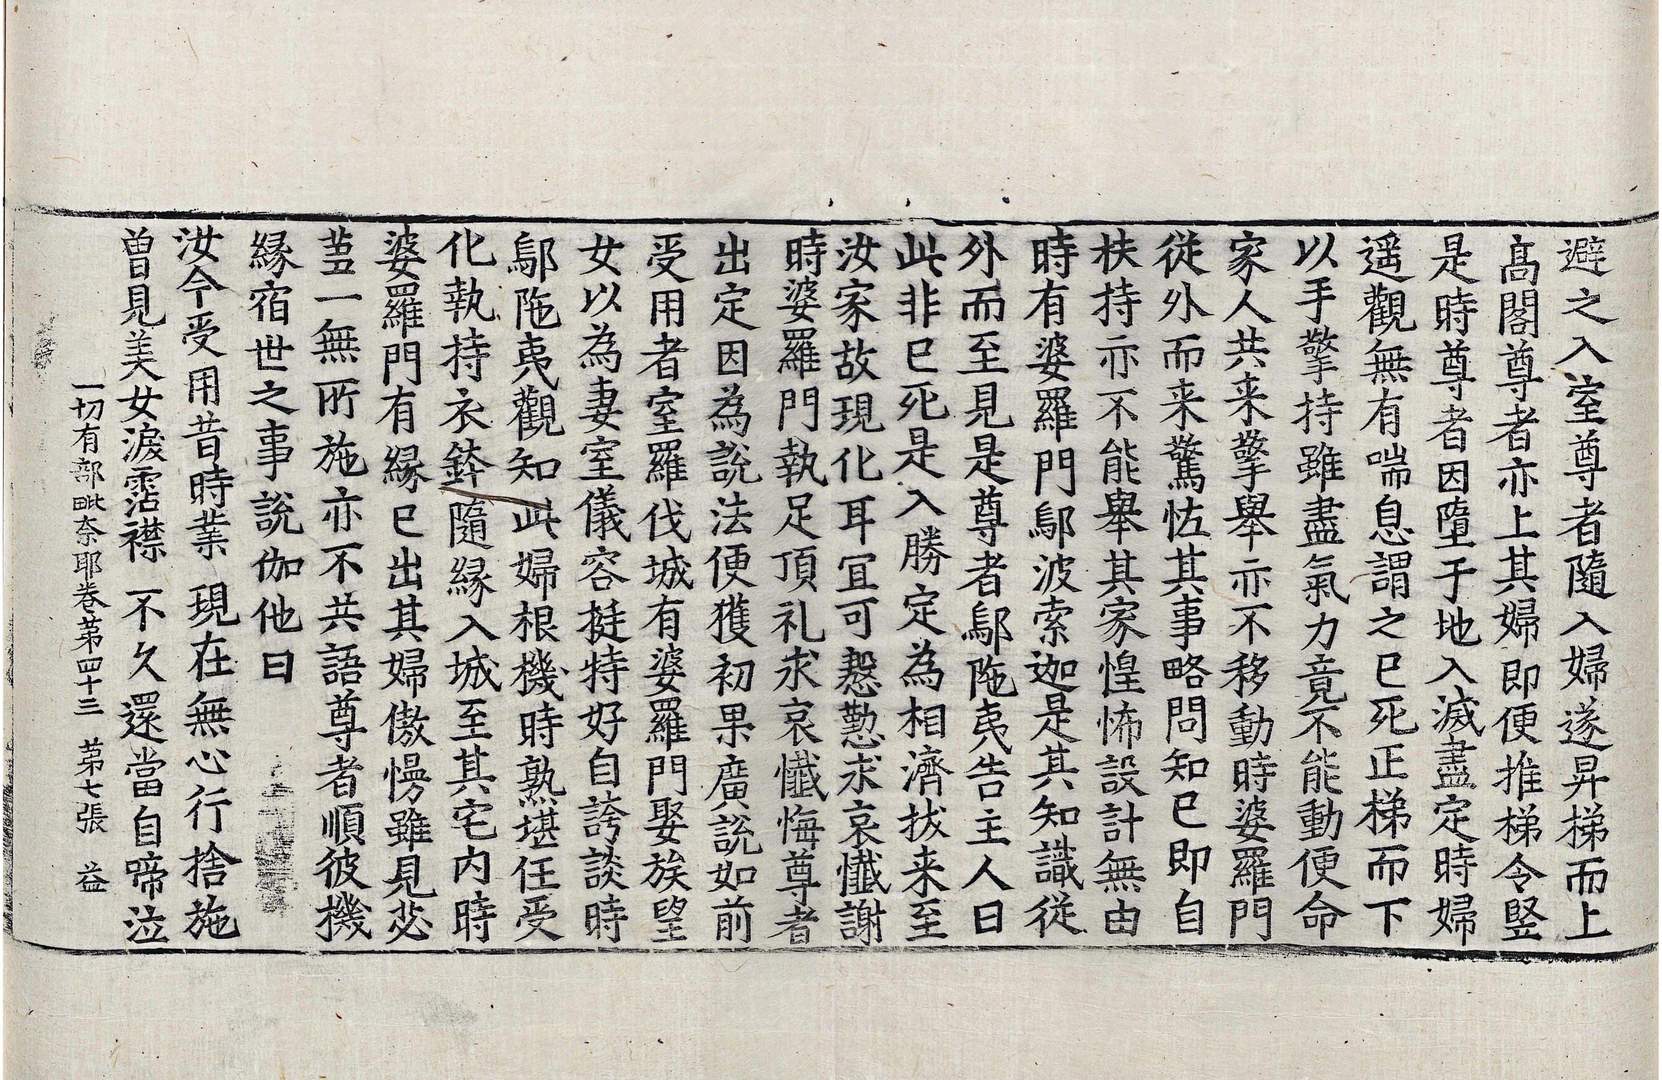 避之入室尊者隨入婦遂昇梯而上
髙閣尊者亦上其婦即便推梯令竪
是時尊者因墮于地入滅盡定時婦
遥觀無有喘息謂之已死正梯而下
以手擎持雖盡氣力竟不能動便命
家人共来擎舉亦不移動時婆羅門
從外而来驚怪其事略問知已即自
扶持亦不能舉其家惶怖設計無由
時有婆羅門鄔波索迦是其知識從
外而至見是尊者鄔陁夷告主人曰
此非已死是入勝定為相濟拔来至
汝家故現化耳宜可慇懃求哀懺謝
時婆羅門執足頂礼求哀懺悔尊者
出定因為說法便獲初果廣說如前
受用者室羅伐城有婆羅門娶族望
女以為妻室儀容挺特好自誇談時
鄔陁夷觀知此婦根機時熟堪任受
化執持衣鉢隨緣入城至其宅内時
婆羅門有緣已出其婦傲慢雖見苾
蒭一無所施亦不共語尊者順彼機
緣宿世之事說伽他曰
汝今受用昔時業 現在無心行捨施
曽見美女淚霑襟 不久還當自啼泣
一切有部毗奈耶卷苐四十三 苐七張 益